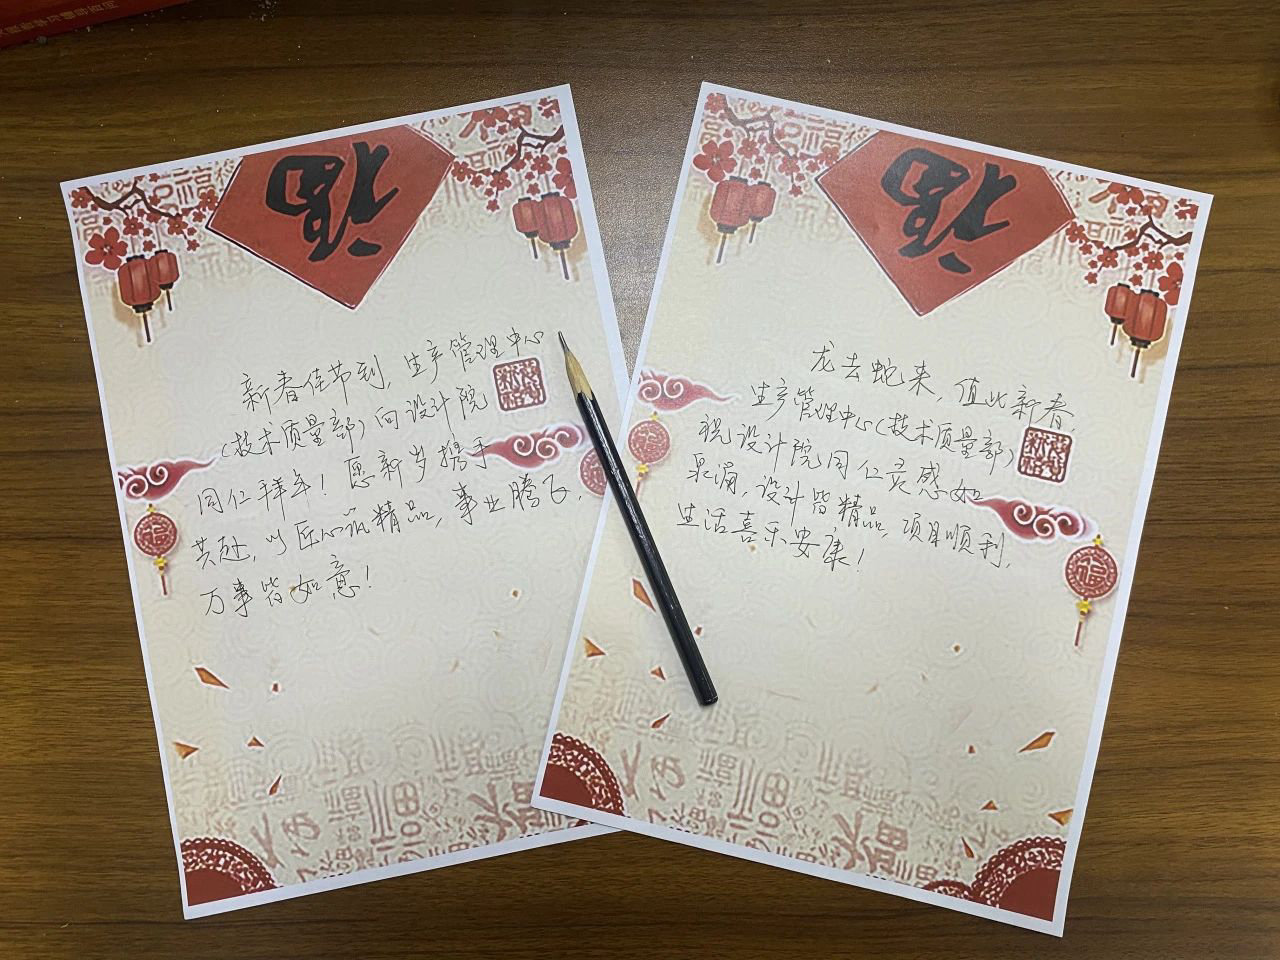 福
新春佳节到，生产管理中心
（技术质量部）向设计院
同仁拜年！愿新岁携手
共赴，以匠心筑精品，事业腾飞，
万事皆如意！
福
龙去蛇来，值此新春，
生产管理中心（技术质量部）
祝设计院同仁灵感如
泉涌，设计皆精品，项目顺利，
生活喜乐安康！